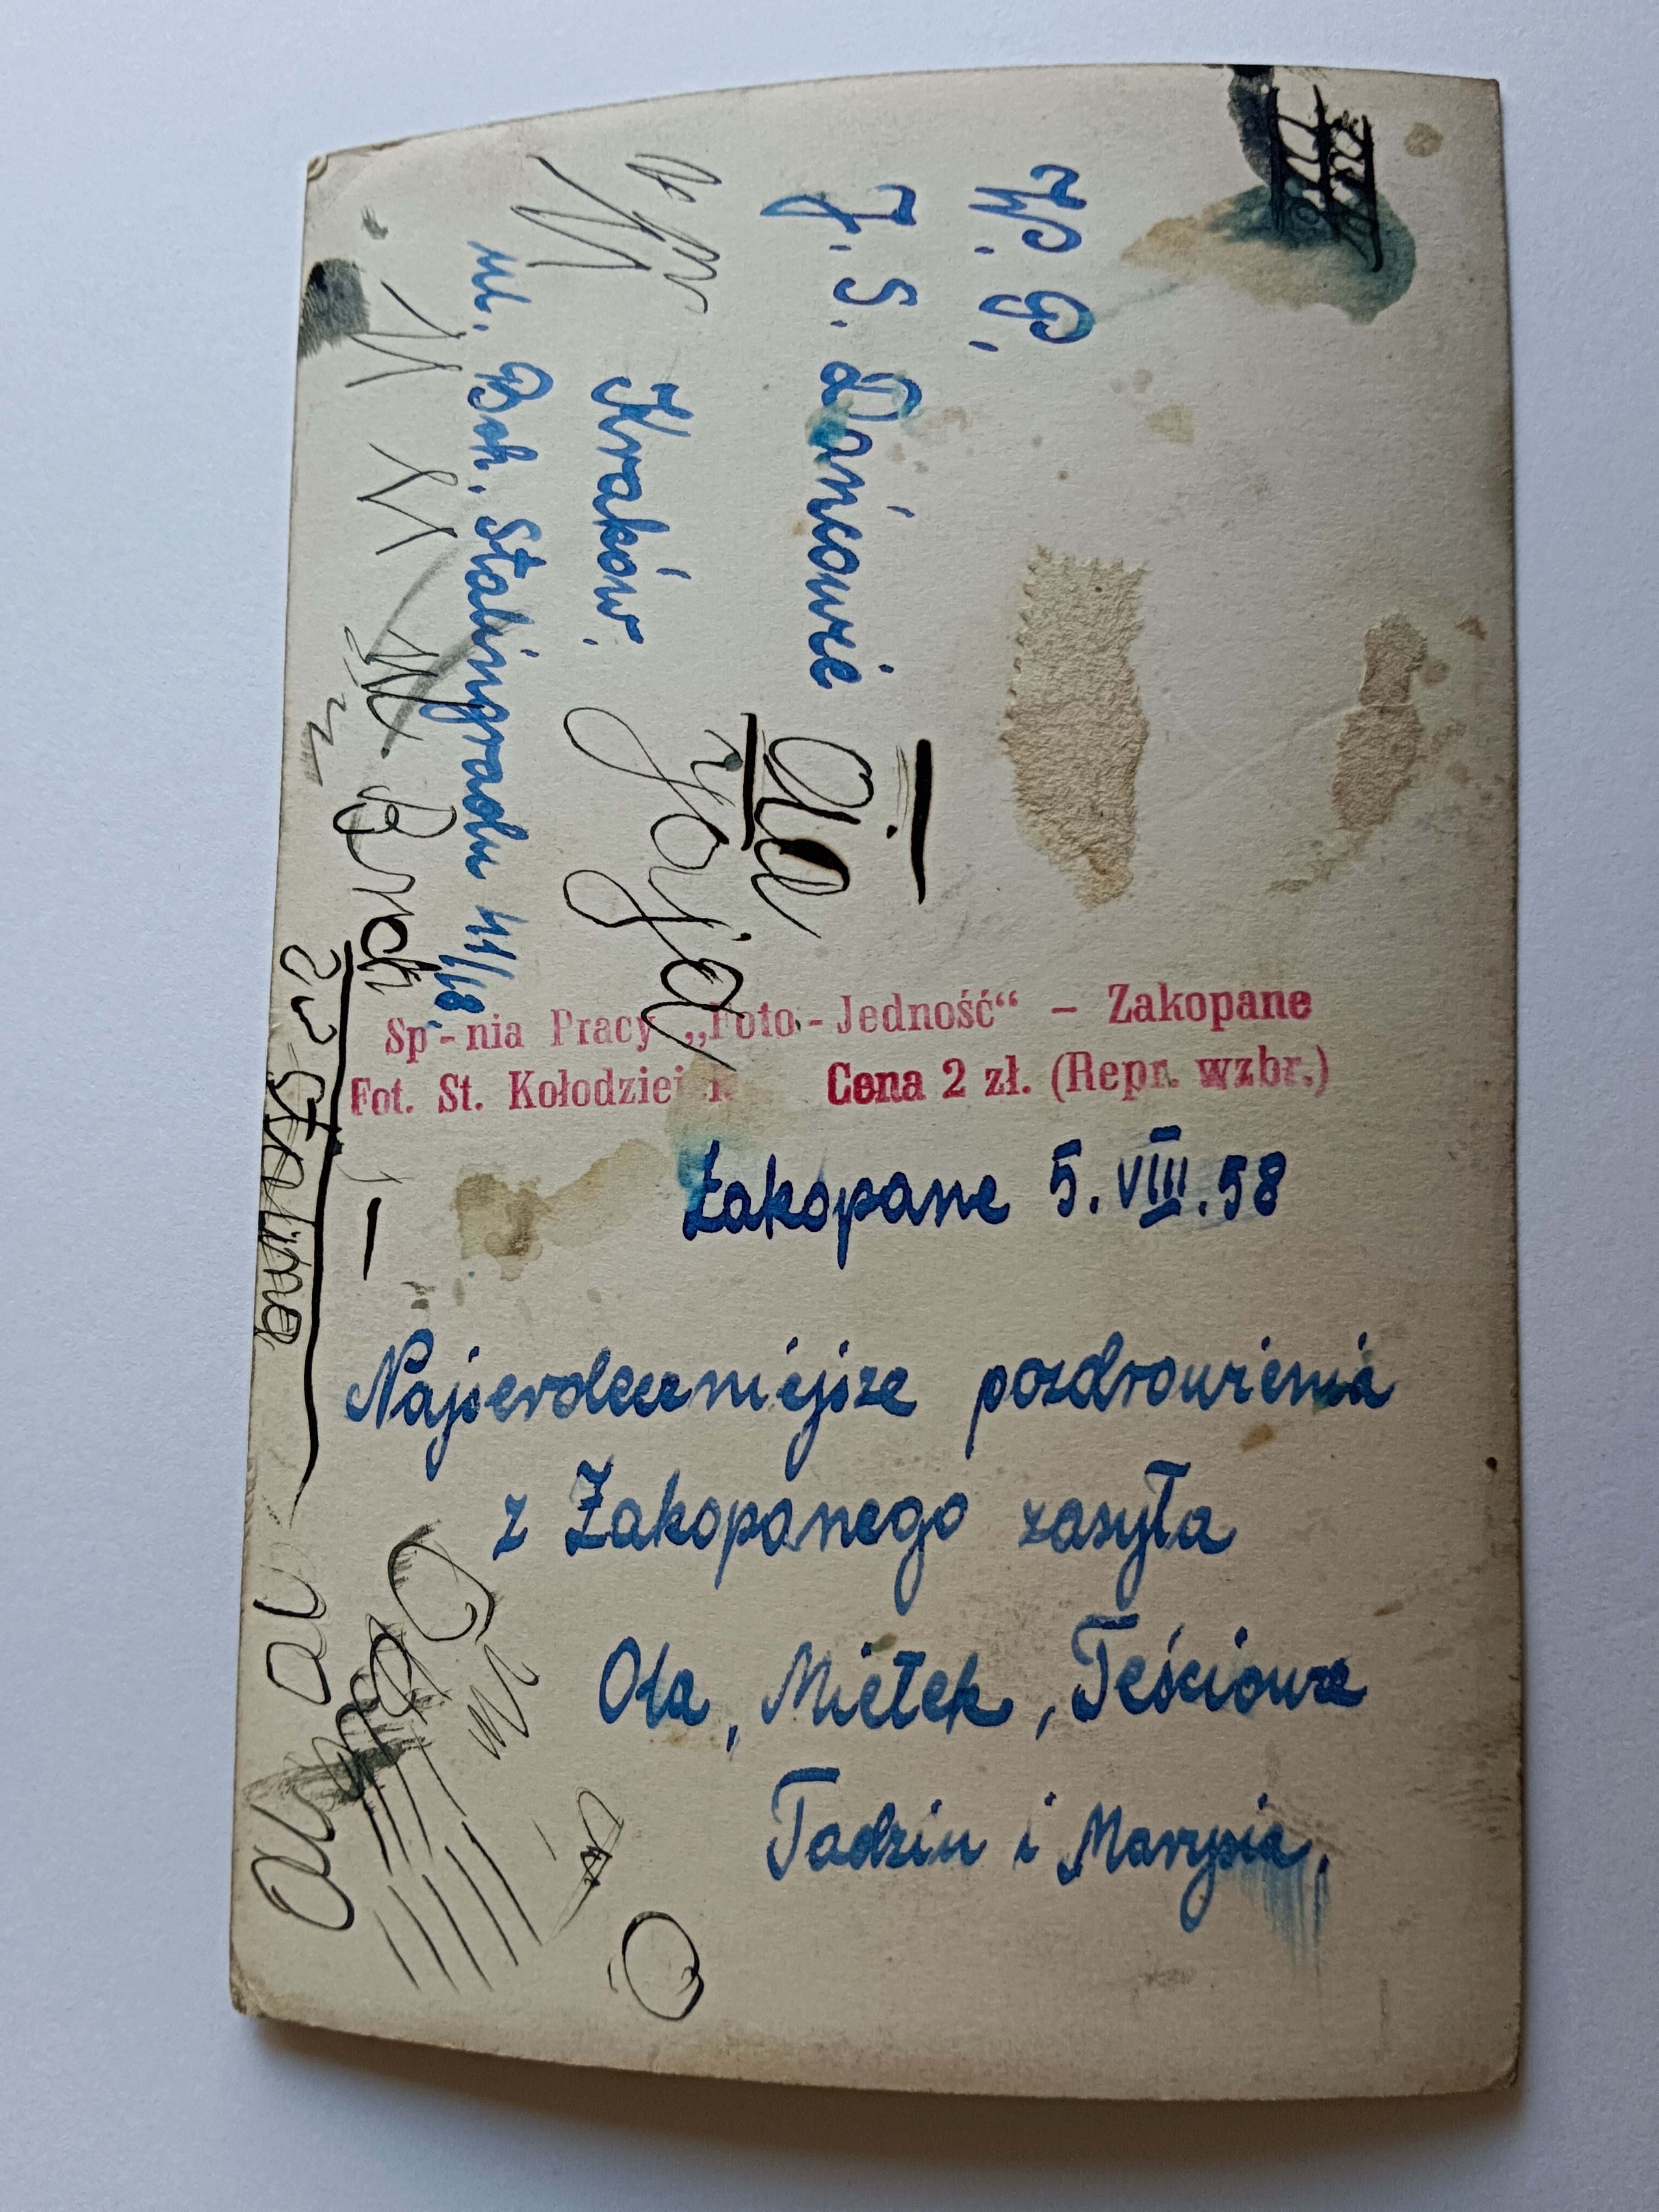 W. P.
J. S. Dańcowie
Kraków.
ul. Boh. Stalingradu 41/18.
Ola
Zojo
Sp-nia Pracy „Foto-Jedność“ – Zakopane
Fot. St. Kołodziej Cena 2 zł. (Repr. wzbr.)
Zakopane 5. VIII. 58
Najserdeczniejsze pozdrowienia
z Zakopanego zasyła
Ola, Mietek, Teściowe
Tadziu i Marysia.
Stalina